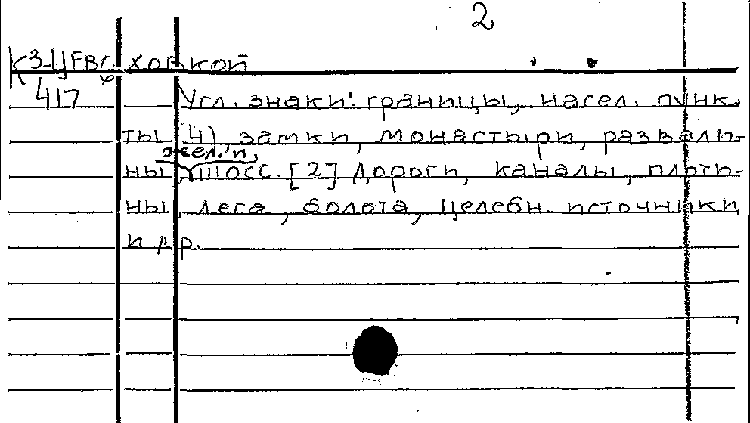 2
К3-ЦЕВСХОВКОЙ
417 Усл. знаки: границы, насел. пунк-
ты (4), замки, монастыри, развали-
жел. и,
ны, шосс. [2] дороги, каналы, плоти-
ны, леса, болота, целебн. источники
и др.